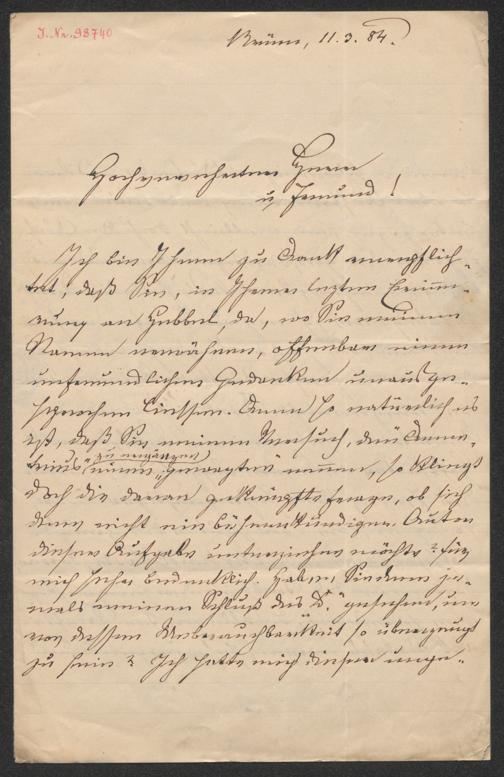 J. Nr. 98740
Brünn, 11.3.84.
Hochverehrter Herr
u. Freund!
Ich bin Ihnen zu Dank verpflich-
tet, daß Sie, in Ihrer letzten Erinne-
rung an Hebbel, da, wo Sie meinen
Namen erwähnen, offenbar einen
unfreundlichen Gedanken unausge-
sprochen ließen. Denn so natürlich es
ist, daß Sie meinen Versuch, den "Deme-
trius" zu ergänzen, einen "gewagten" nennen, so klingt
doch die daran geknüpfte Frage, ob sich
denn nicht ein bühnenkundiger Autor
dieser Aufgabe unterziehen möchte? für
mich sehr bedenklich. Haben Sie denn je-
mals meinen Schluß des D." gesehen, um
von dessen Unbrauchbarkeit so überzeugt
zu sein? Ich hatte mich dieser unge-